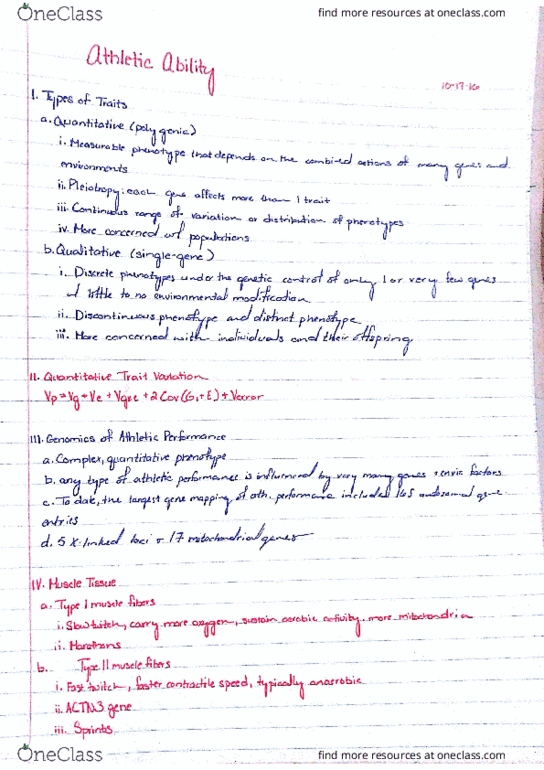 OneClass
find more resources at oneclass.com
Athletic Ability
10-17-16
I. Types of Traits
a. Quantitative (polygenic)
i. Measurable phenotype that depends on the combined actions of many genes and
environments
ii. Pleiotropy: each gene affects more than 1 trait
iii. Continuous range of variation or distribution of phenotypes
iv. More concerned w/ populations
b. Qualitative (single-gene)
i. Discrete phenotypes under the genetic control of only 1 or very few genes
w/ little to no environmental modification
ii. Discontinuous phenotype and distinct phenotype
iii. More concerned with individuals and their offspring
II. Quantitative Trait Variation
Vp = Vg + Ve + Vgxe + 2 Cov(G,+E) + Verror
III. Genomics of Athletic Performance
a. Complex, quantitative phenotype
b. any type of athletic performance is influenced by very many genes + envir. factors
c. To date, the largest gene mapping of ath. performance included 165 autosomal gene
entries
d. 5 X-linked loci + 17 mitochondrial genes
IV. Muscle Tissue
a. Type I muscle fibers
i. Slow twitch, carry more oxygen, sustain aerobic activity, more mitochondria
ii. Marathons
b. Type II muscle fibers
i. Fast twitch, faster contractile speed, typically anaerobic
ii. ACTN3 gene
iii. Sprints
OneClass
find more resources at oneclass.com